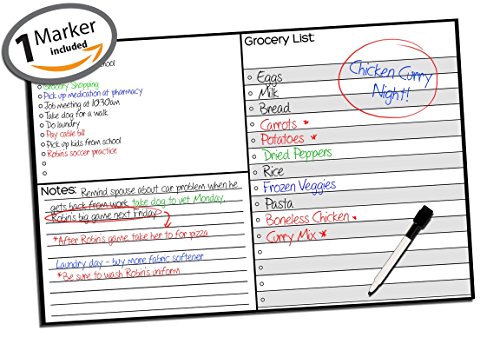 1 Marker
included
school
Grocery Shopping
Pick up medication at pharmacy
Job meeting at 10:30am
Take dog for a walk
Do laundry
Pay cable bill
Pick up kids from school
Robin's soccer practice
Notes: Remind spouse about car problem when he
gets back from work, take dog to vet Monday,
Robin's big game next Friday
*After Robin's game take her to for pizza
Laundry day - buy more fabric softener
*Be sure to wash Robin's uniform
Grocery List:
Eggs
Milk
Bread
Carrots *
Potatoes *
Dried Peppers
Rice
Frozen Veggies
Pasta
Boneless Chicken *
Curry Mix *
Chicken Curry
Night!